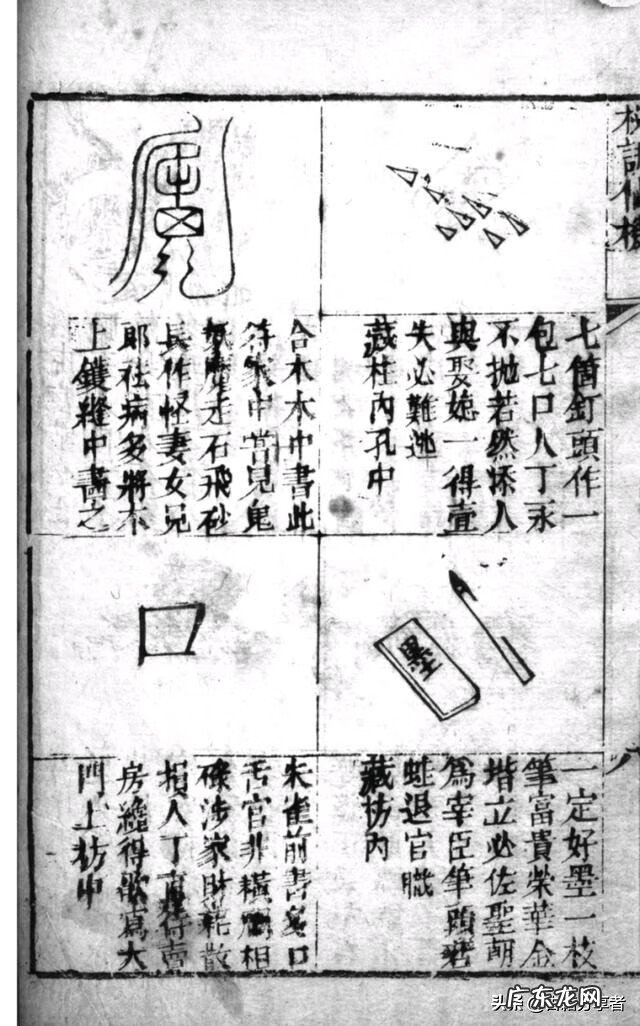 秘訣仙機
八
七箇釘頭作一
包七口人丁永
不抛若然添人
與娶媳一得壹
失必難逃
藏柱內孔中
合木木中書此
符家中常見鬼
魔走石飛砂
長作怪妻女兒
郎病多將木
上縫中之
墨
一定好墨一枝
筆富貴榮華金
堦立必佐聖朝
爲宰臣筆頭若
蛀退官職
藏枋內
口
朱雀前書多口
舌官非橫禍相
涉家財耗散
損人丁直待賣
房纔得歇寫大
門上枋中
广东龙网
头条
享者